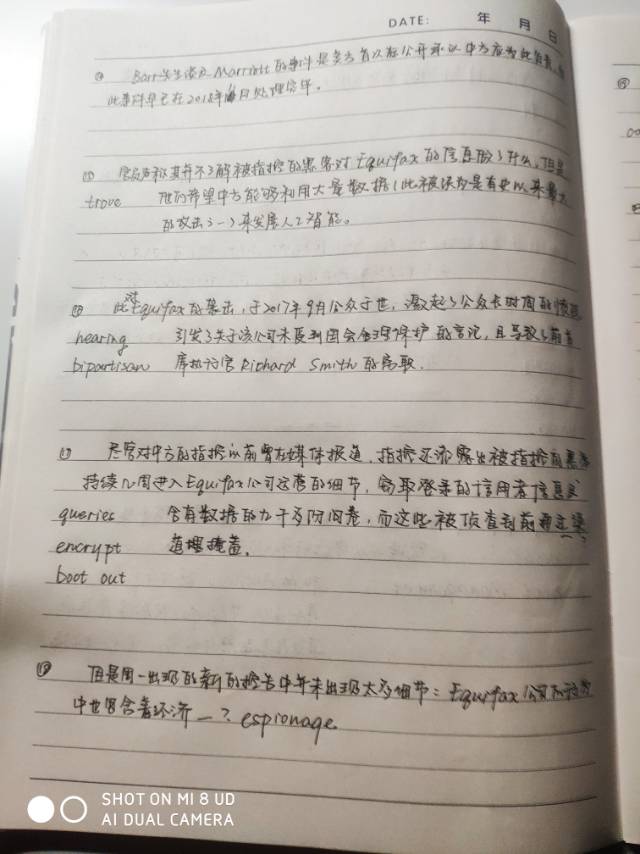 DATE: 年 月 日
Barr先生谈及Marriott的事件是美方首次在公开承认中方应为此负责,
此事件早已在2018年 月处理
官员声称其并不了解被指控的黑客对Equifax的信息做了什么,但是
trove 他们希望中方能够利用大量数据(此被认为是有史以来最大
的攻击之一)来发展人工智能。
此 Equifax的袭击,于2017年9月公众于世,激起了公众长时间的愤怒
hearing 引发了关于该公司未受到国会 保护的言论,且导致了前首
bipartisan 席执行官Richard Smith的离职.
尽管对中方的指控以前曾在媒体报道,指控还添露出被指控的黑客
持续几周进入Equifax公司运营的细节,窃取登录的信用者信息或
queries 含有数据的九千多份问卷,而这些被侦查到前
encrypt 掩盖.
boot out
但是周一出现的新的控告中并未出现太多细节:Equifax公司
中也包含着经济一?espionage
SHOT ON MI 8 UD
AI DUAL CAMERA